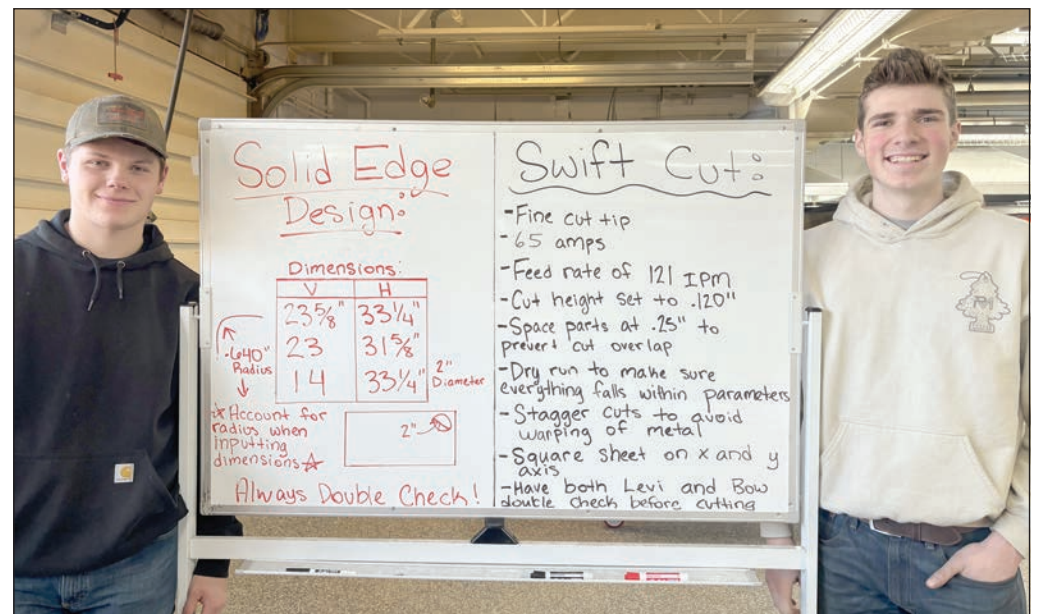 Solid Edge
Design:
Dimensions:
V H
23 5/8" 33 1/4"
23 31 5/8"
14 33 1/4"
.640"
Radius
2"
Diameter
☆ Account for
radius when
inputting
dimensions ☆
2"
Always Double Check!
Swift Cut:
-Fine cut tip
- 65 amps
-Feed rate of 121 IPM
-Cut height set to .120"
-Space parts at .25" to
prevent cut overlap
-Dry run to make sure
everything falls within parameters
-Stagger cuts to avoid
warping of metal
-Square sheet on x and y
axis
-Have both Levi and Bow
double check before cutting